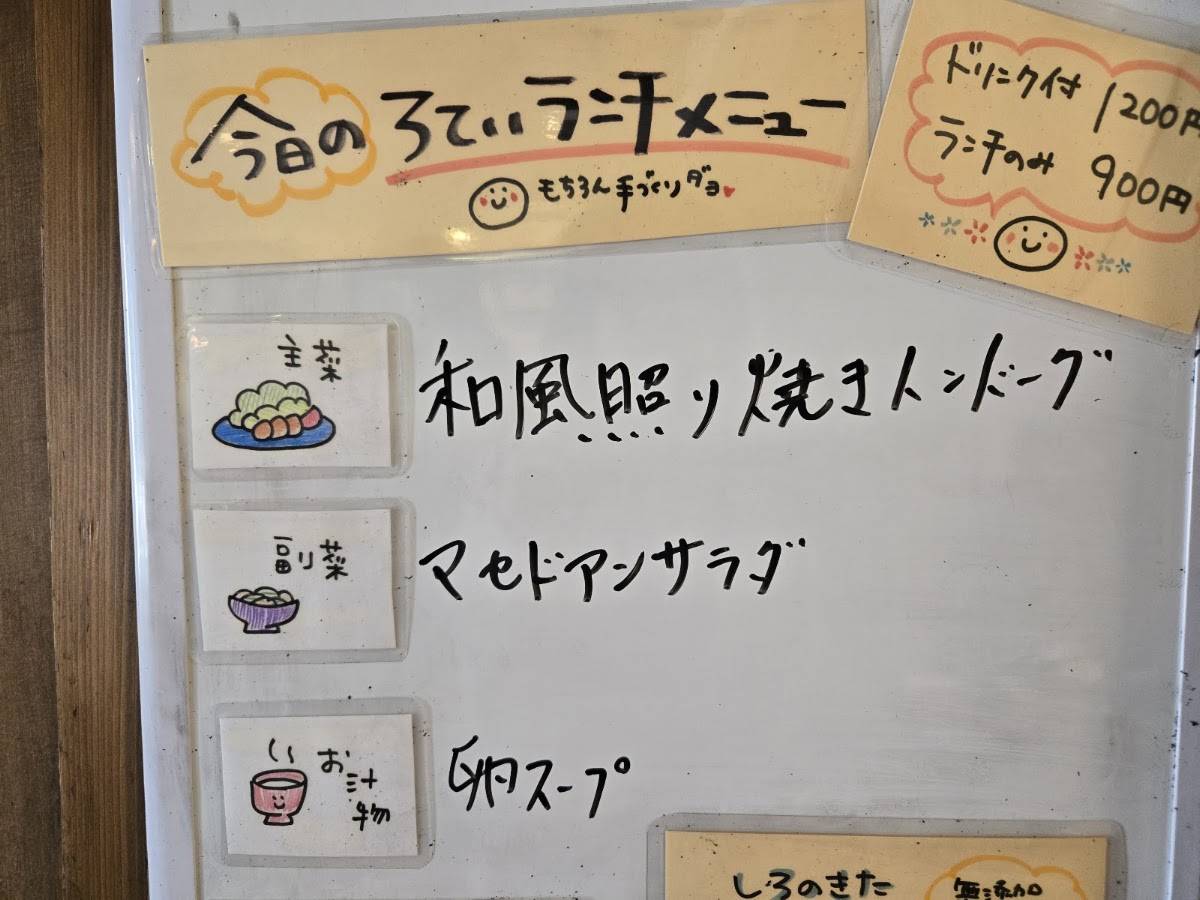 今日の ろてぃランチメニュー
もちろん手づくりダヨ
ドリンク付 1200円
ランチのみ 900円
主菜
和風照り焼きハンバーグ
副菜
マセドアンサラダ
お汁物
卵スープ
しろのきた
無添加